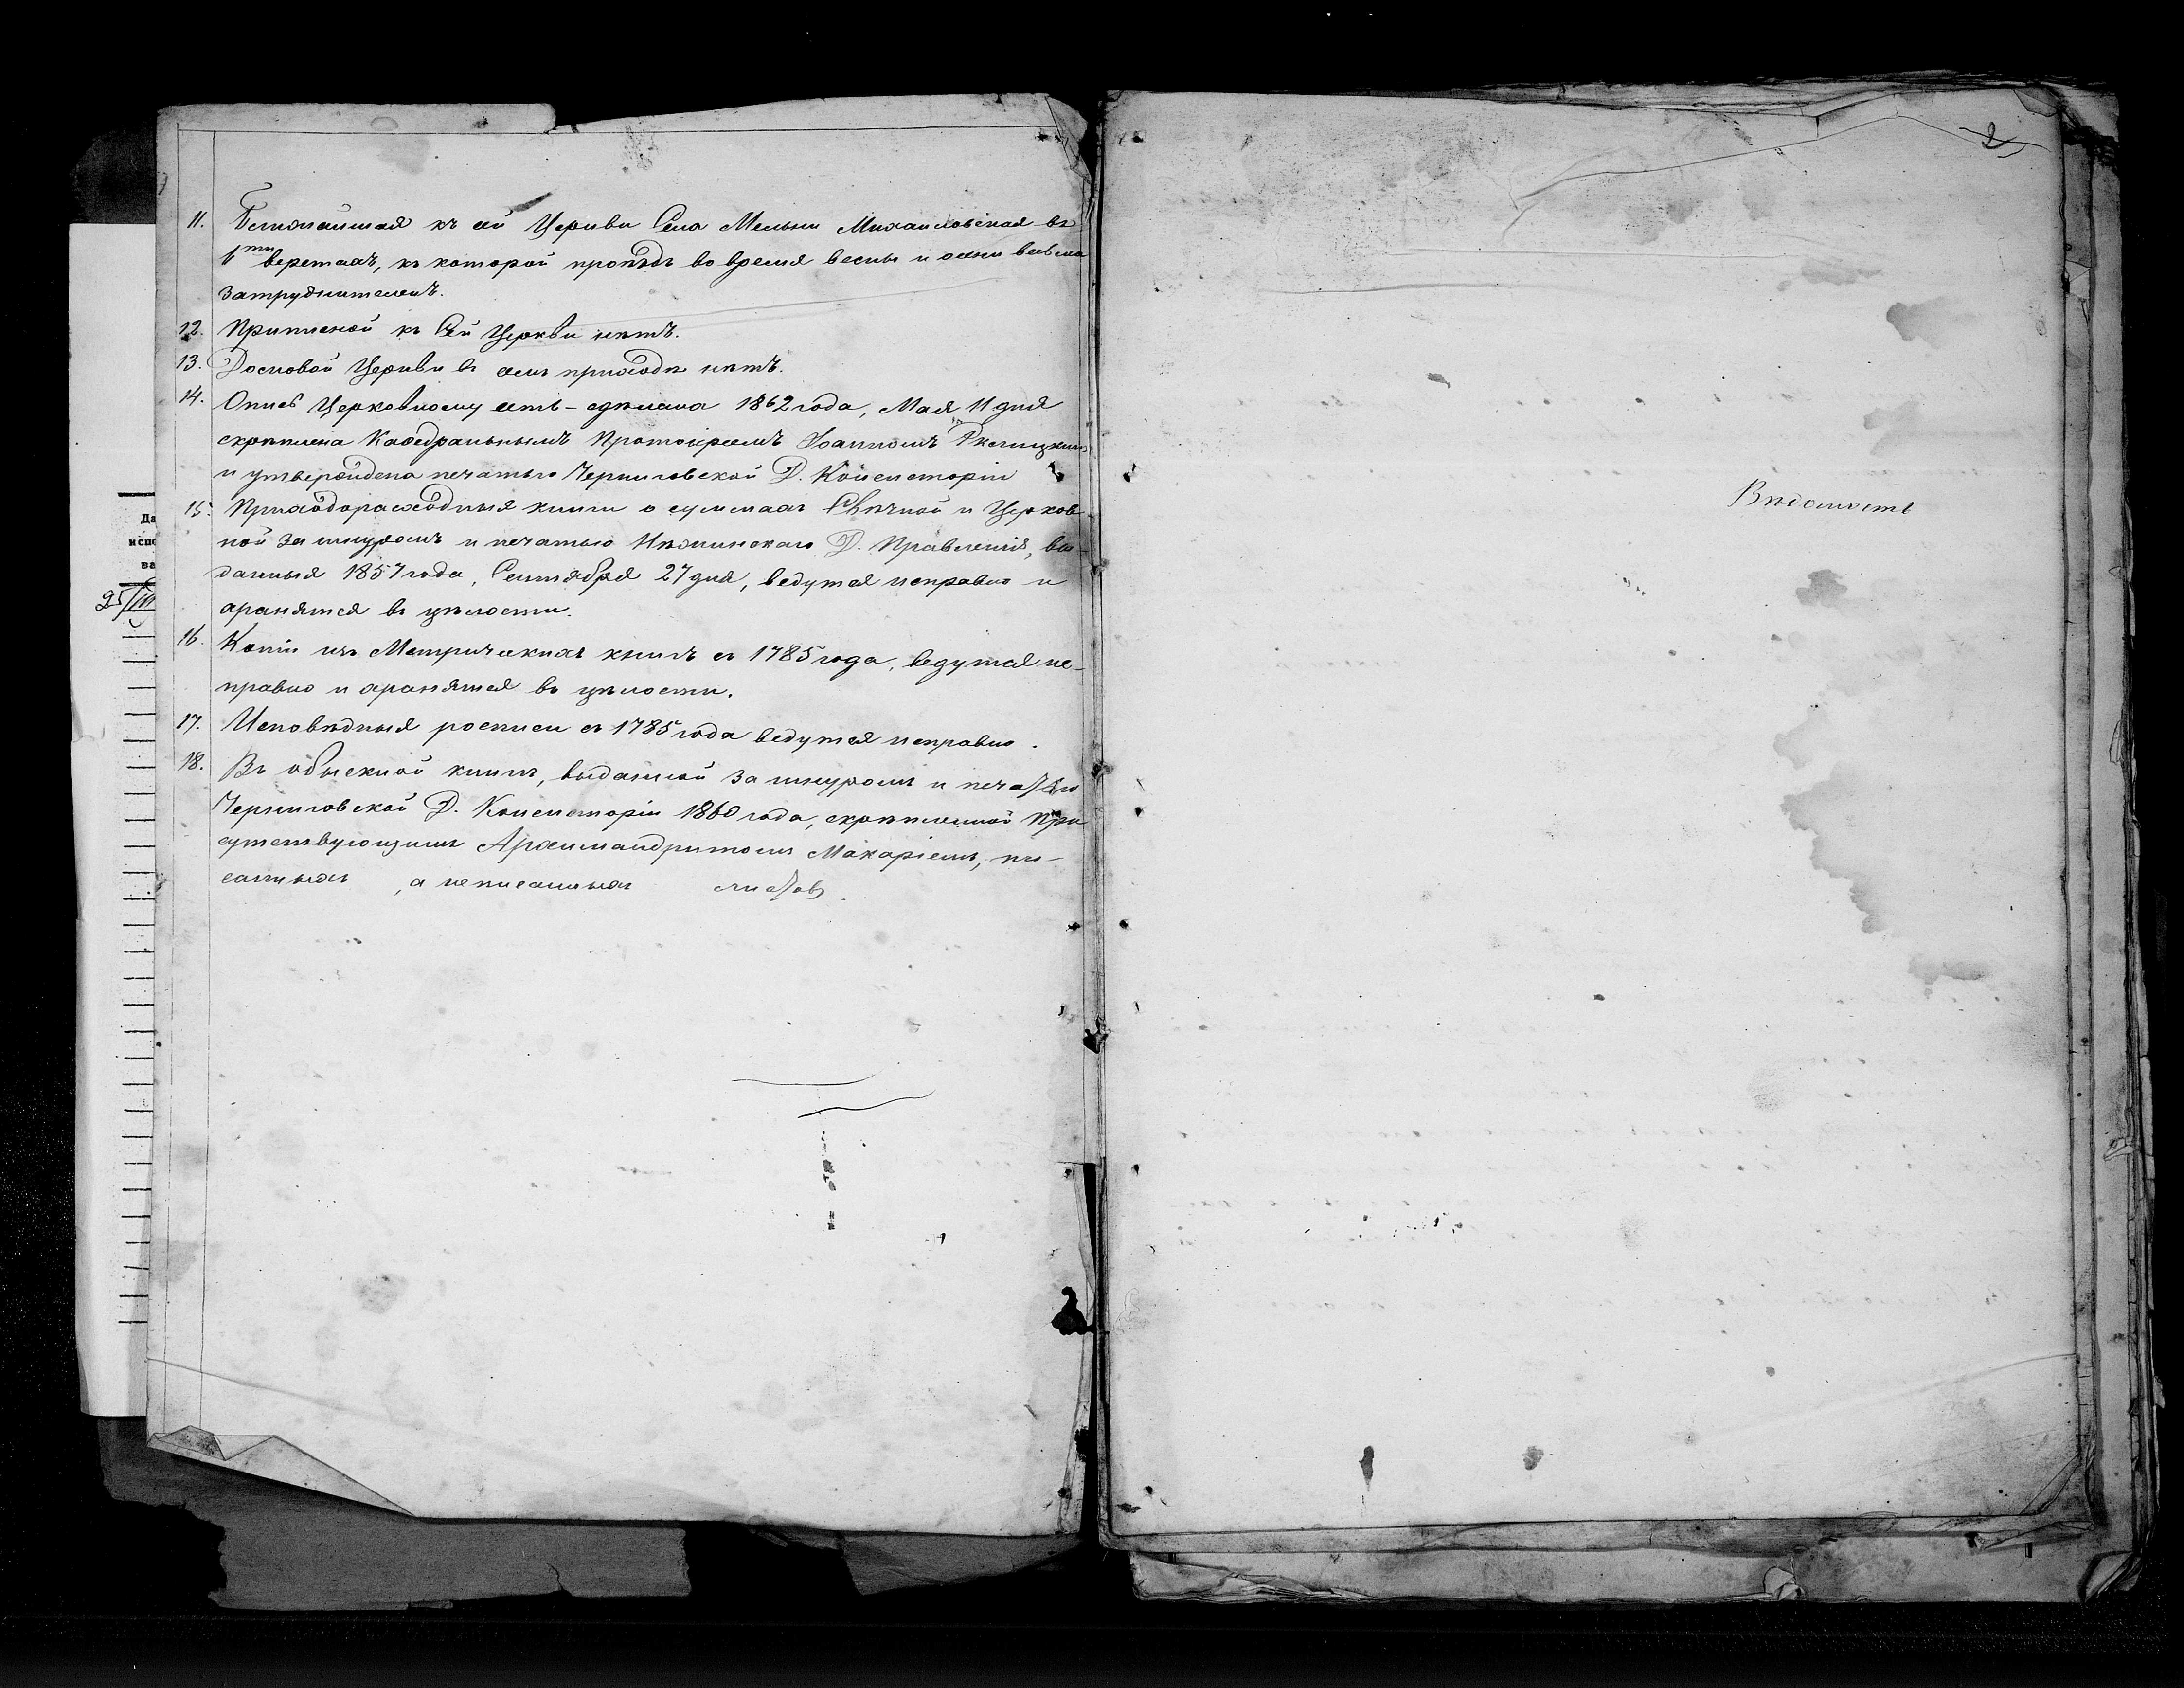 11. Ближайшая къ сей Церкви Села Мельни Михайловская въ
6ти верстахъ, къ которой проѣздъ во время весны и осени весьма
затруднителенъ.
12. Приписной къ Сей Церкви нѣтъ.
13. Домовой Церкви въ семъ приходѣ нѣтъ.
14. Опись Церковному есть – сдѣлана 1862 года, Мая 11 дня
скрѣплена Каѳедральнымъ Протоіреемъ Іоанномъ
и утверждена печатью Черниговской Д. Консисторіи
15. Приходорасходныя книги о суммахъ Свѣчной и Церков
ной за шнуромъ и печатью Нѣжинскаго Д. Правленія, вы-
данныя 1857 года, Сентября 27 дня, ведутся исправно и
хранятся въ цѣлости.
16. Копіи изъ Метрическихъ книгъ съ 1785 года, ведутся ис-
правно и хранятся въ цѣлости.
17. Исповѣдныя росписи съ 1785 года ведутся исправно.
18. Въ обыскной книгѣ, выданной за шнуромъ и печатью
Черниговской Д. Консисторіи 1860 года, скрѣпленной При
сутствующимъ Архимандритомъ Макаріемъ, пи-
санныхъ , а неписанныхъ листовъ.
2
Вѣдомость
Да
испо
ва
25/